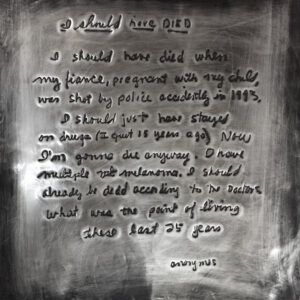 I should have DIED
I should have died when
my fiance, pregnant with my child
was shot by police accidently in 1983.
I should just have stayed
on drugs (I quit 15 years ago) NOW
I'm gonna die anyway. I have
multiple melanoma. I should
already be dead according to the Doctors
what was the point of living
these last 25 years
anonymous